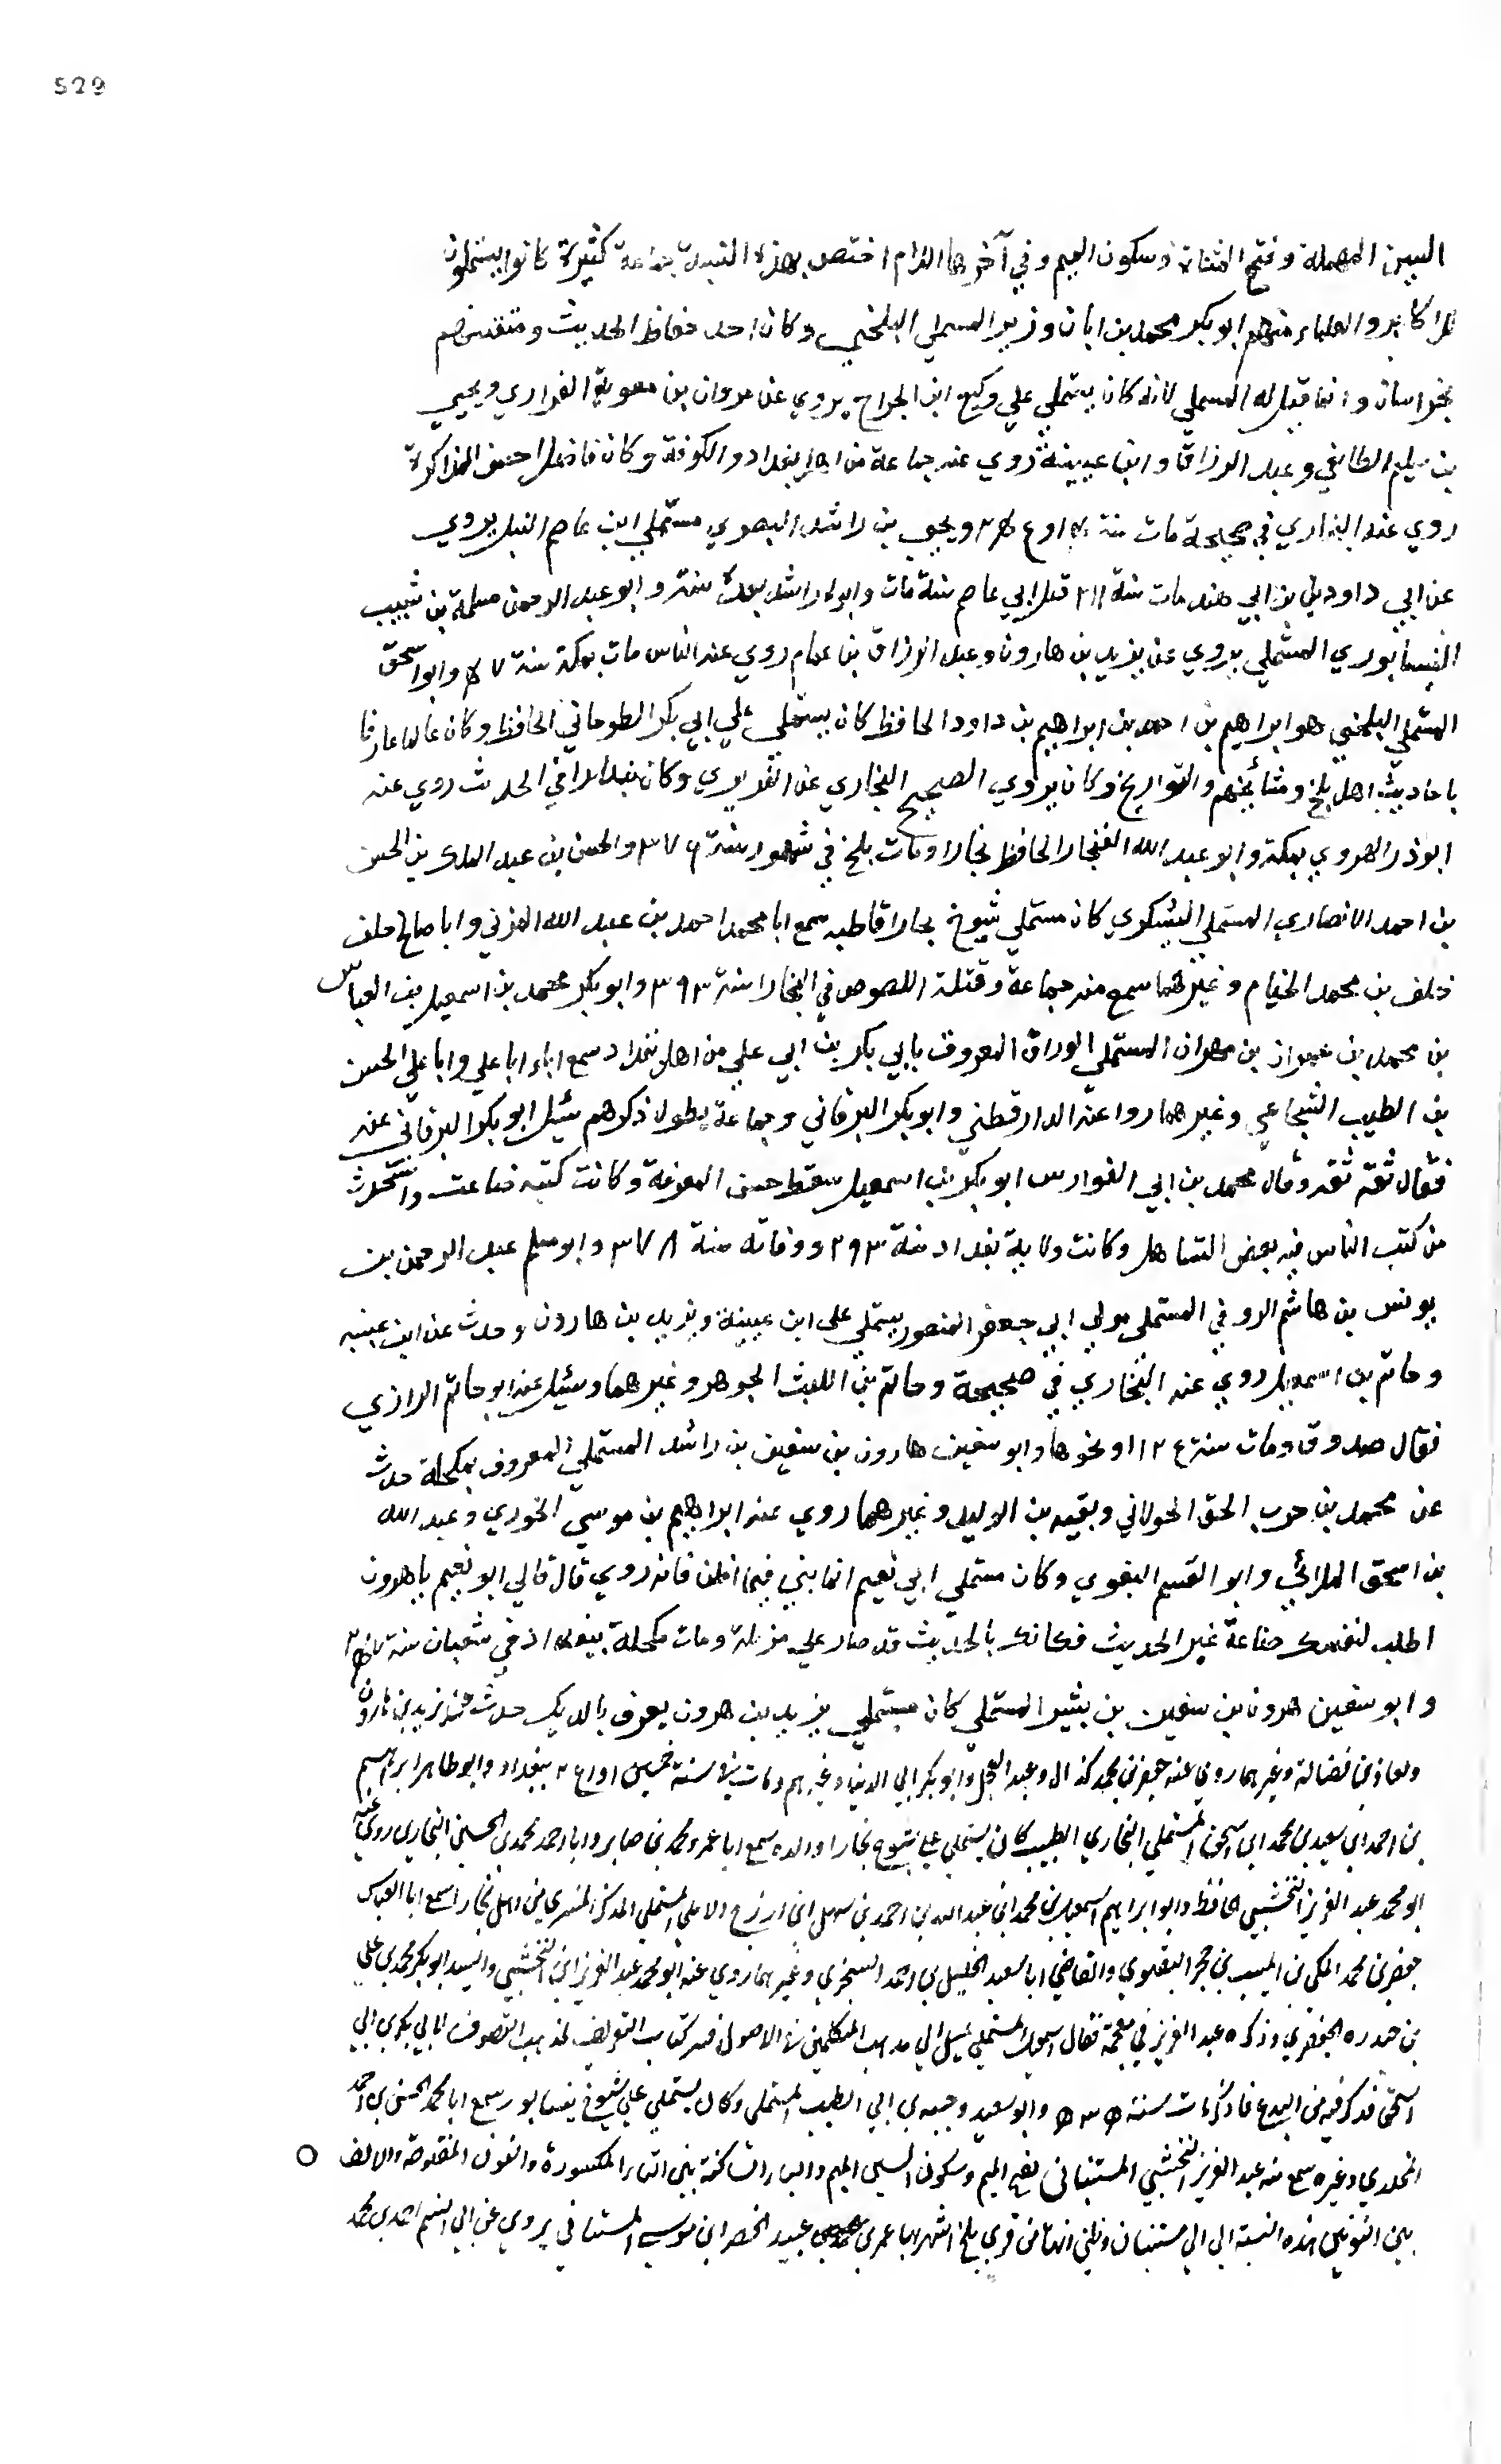 529
السين المهملة وفتح المثناة وسكون الميم وفي آخرها اللام اختص بهذه النسبة جماعة كثيرة كانوا يستملون
للاكابر والعلماء منهم ابو بكر محمد بن ابان وزير المستملي البلخي وكان احد حفاظ الحديث ومتقنيهم
بخراسان وانما قيل له المستملي لانه كان يستملي علي وكيع ابن الجراح يروي عن مروان بن معوية الفزاري ويحيي
بن سليم الطايفي وعبد الرزاق وابن عيينة روي عنه جماعة من اهل بغداد والكوفة وكان فاضلا حسن المذاكرة
روي عنه البخاري في صحيحة مات سنة ويحيي بن راشد البصري مستملي ابن عاصم النبل يروي
عن ابي داود بن ابي هند مات سنة ٢١١ قبل ابي عاصم سنة مات وابو راشد بعده سنة وابو عبد الرحمن سلمة بن شبيب
النيسابوري المستملي يروي عن يزيد بن هارون وعبد الرزاق بن همام روي عنه الناس مات بمكة سنة وابو اسحق
المستملي البلخي هو ابراهيم بن احمد بن ابراهيم بن داود الحافظ كان يستملي علي ابي بكر الطرخاني الحافظ وكان عالما عارفا
باحاديث اهل بلخ ومشائخهم والتواريخ وكان يروي الصحيح البخاري عن الفربري وكان بندارا في الحديث روي عنه
ابو ذر الهروي بمكة وابو عبد الله الغنجار الحافظ بخارا ومات بلخ في شهور سنة ٣٧٦ والحسن بن عبد الملك بن الحسن
بن احمد الانصاري المستملي اليشكري كان مستملي شيوخ بخارا قاطبه سمع ابا محمد احمد بن عبد الله المزني وابا صالح خلف
خلف بن محمد الخيام وغيرهما سمع منه جماعة وقتلة اللصوص في البخارا سنة ٣٩٣ وابو بكر محمد بن اسمعيل بن العباس
بن محمد بن عمر بن مهران المستملي الوراق المعروف بابي بكر بن ابي علي من اهل بغداد سمع اباه ابا علي وابا علي الحسن
بن الطيب الشجاعي وغيرهما روا عنه الدارقطني وابو بكر البرقاني وجماعة يطول ذكرهم سئل ابو بكر البرقاني عنه
فقال ثقة ثقة وقال محمد بن ابي الفوارس ابو بكر بن اسمعيل متيقظ حسن المعرفة وكانت كتبه ضاعت واستحدث
من كتب الناس فيه بعض التساهل وكانت ولاية بغداد سنة ٢٩٣ ووفاته سنة ٣٧٨ وابو مسلم عبد الرحمن بن
يونس بن هاشم الرومي المستملي مولي ابي جعفر المنصور يستملي علي ابن عيينة ويزيد بن هارون وحدث عن ابن عيينه
وحاتم بن اسمعيل روي عنه البخاري في صحيحة وحاتم بن الليث الجوهر وغيرهما وسئل عنه ابو حاتم الرازي
فقال صدوق ومات سنة ٢٢٤ او نحوها وابو سفين هارون بن سفين بن راشد المستملي المعروف بمكحلة حدث
عن محمد بن حرب الحق الخولاني وبقيه بن الوليد وغيرهما روي عنه ابراهيم بن موسي الخوري وعبد الله
بن اسحق المدائني وابو القسم البغوي وكان مستملي ابي نعيم انما بني فيما اظن فانه روي قال قالي ابو نعيم ياهرون
اطلب لنفسك صناعة غير الحديث فكانك بالحديث قد صار علي مزبلة ومات مكحلة ببغداد في شعبان سنة
وابو سفين هرون بن سفين بن بشير المستملي كان مستملي يزيد بن هرون يعرف بالديك حدث عن يزيد بن هارون
ومعاذ بن فضالة وغيرهما روي عنه جعفر بن محمد كذال وعبد العجل وابو بكر ابي الدنيا وغيرهم ومات في سنة خمسين او ببغداد وابو طاهر ابراهيم
بن احمد ابن سعيد بن محمد ابن اسحق المستملي البخاري الطبيب كان يستملي علي شيوخ بخارا ووالده سمع ابا عمرو محمد بن صابر وابا احمد محمد بن الحسن البخاري روي عنه
ابو محمد عبد العزيز النخشبي الحافظ وابو ابراهيم اسمعيل بن محمد ابن عبد الله بن احمد بن سهل ابن ارزح الاملي المستملي المذكر المفسري من اهل بخارا سمع ابا العباس
جعفر بن محمد المكي بن المسيب بن حجر البغلوي والقاضي ابا سعيد الخليل بن احمد السجزي وغيرهما روي عنه ابو محمد عبد العزيز ابن النخشبي والسيد ابو بكر محمد بن علي
بن حيدره الجعفري وذكره عبد العزيز في معجمة فقال اسمعيل المستملي يميل الي مذهب المتكلمين في الاصول فسر كتاب التعرف لمذهب التصوف لابي بكر بن ابي
اسحق فذكر فيه من البدع ما ذكر مات سنة وابو سعيد وجيه بن ابي الطيب المستملي وكان يستملي علي شيوخ نيسابور سمع ابا محمد الحسن بن احمد
المخلدي وغيره سمع منه عبد العزيز النخشبي المستيناني بضم الميم وسكون السين الميم والياء الساكنة بين التاء المكسورة والنون المفتوحة والالف
بين النونين هذه النسبة الي الي مستينان وظني انها من قري بلخ اشتهر بها عمر بن عبيد الخصر ابن موسي المستيناني يروي عن ابي القسم احمد بن محمد